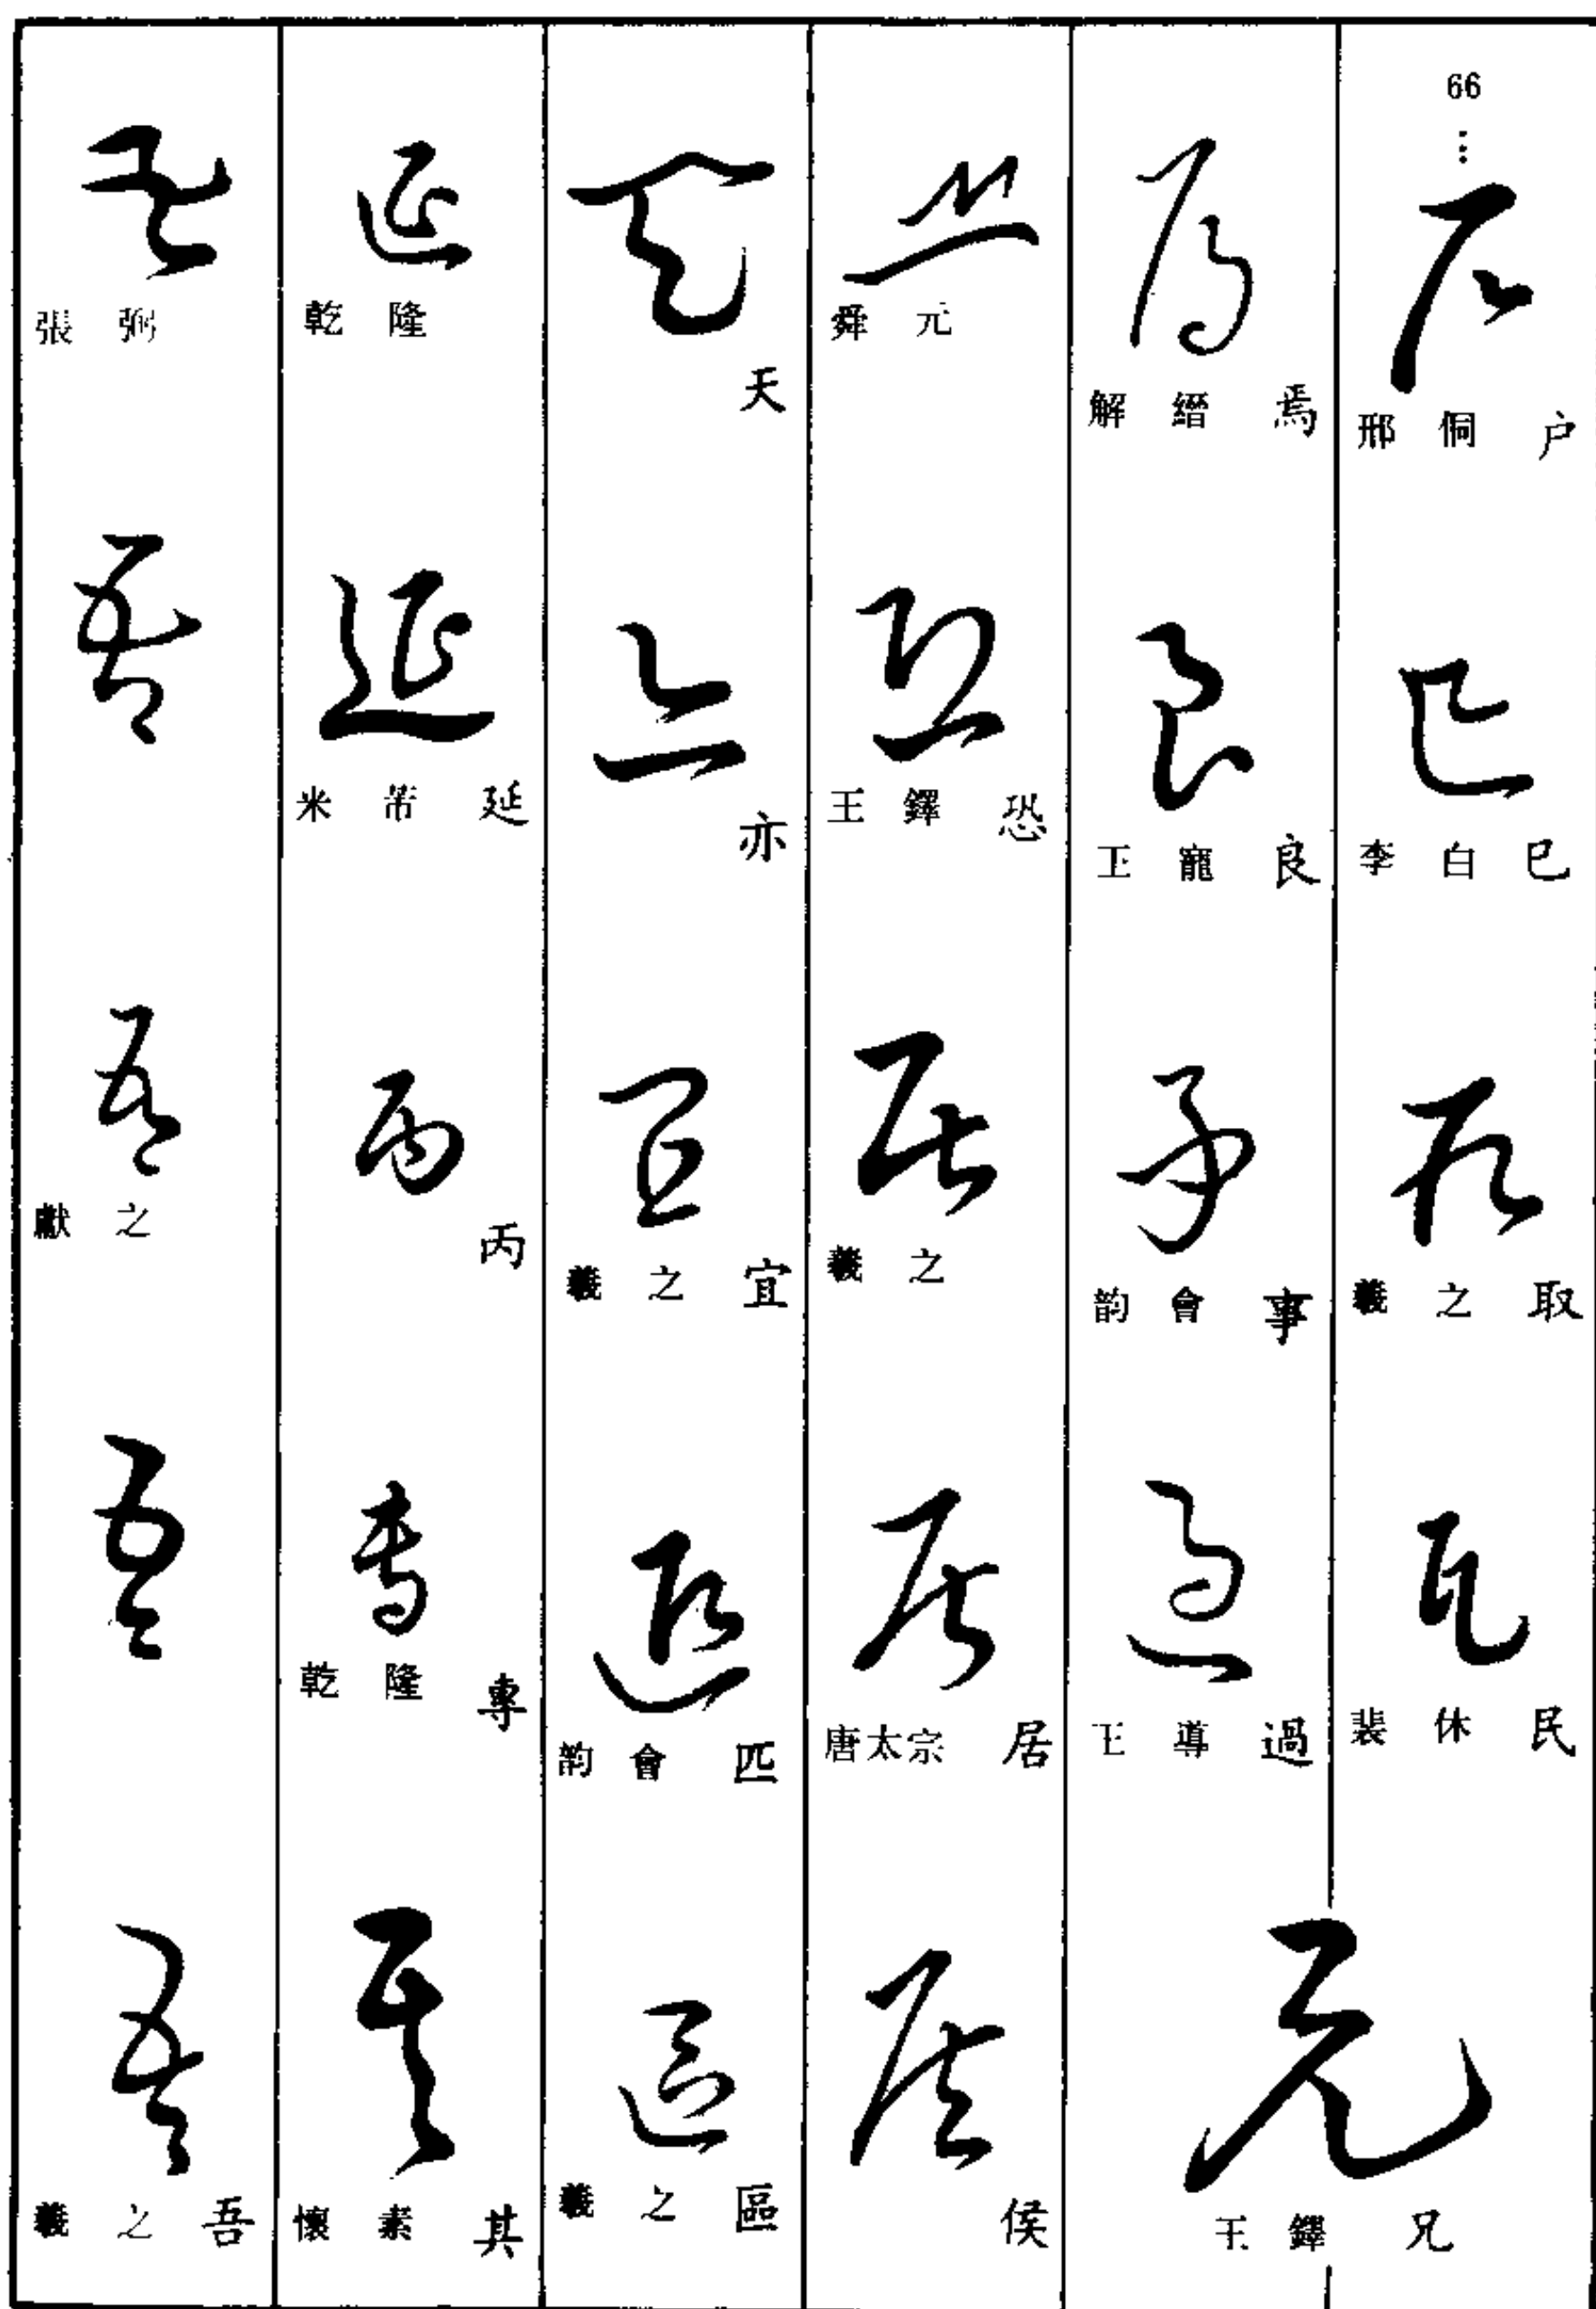 66
…
邢侗 户
李白 巳
羲之 取
裴休 民
解縉 焉
王寵 良
韵會 事
王導 過
王鐸 兄
舜元
王鐸 恐
羲之
唐太宗 居
侯
天
亦
羲之 宜
韵會 匹
羲之 區
乾隆
米芾 延
丙
乾隆 專
懷素 其
張弼
獻之
羲之 吾